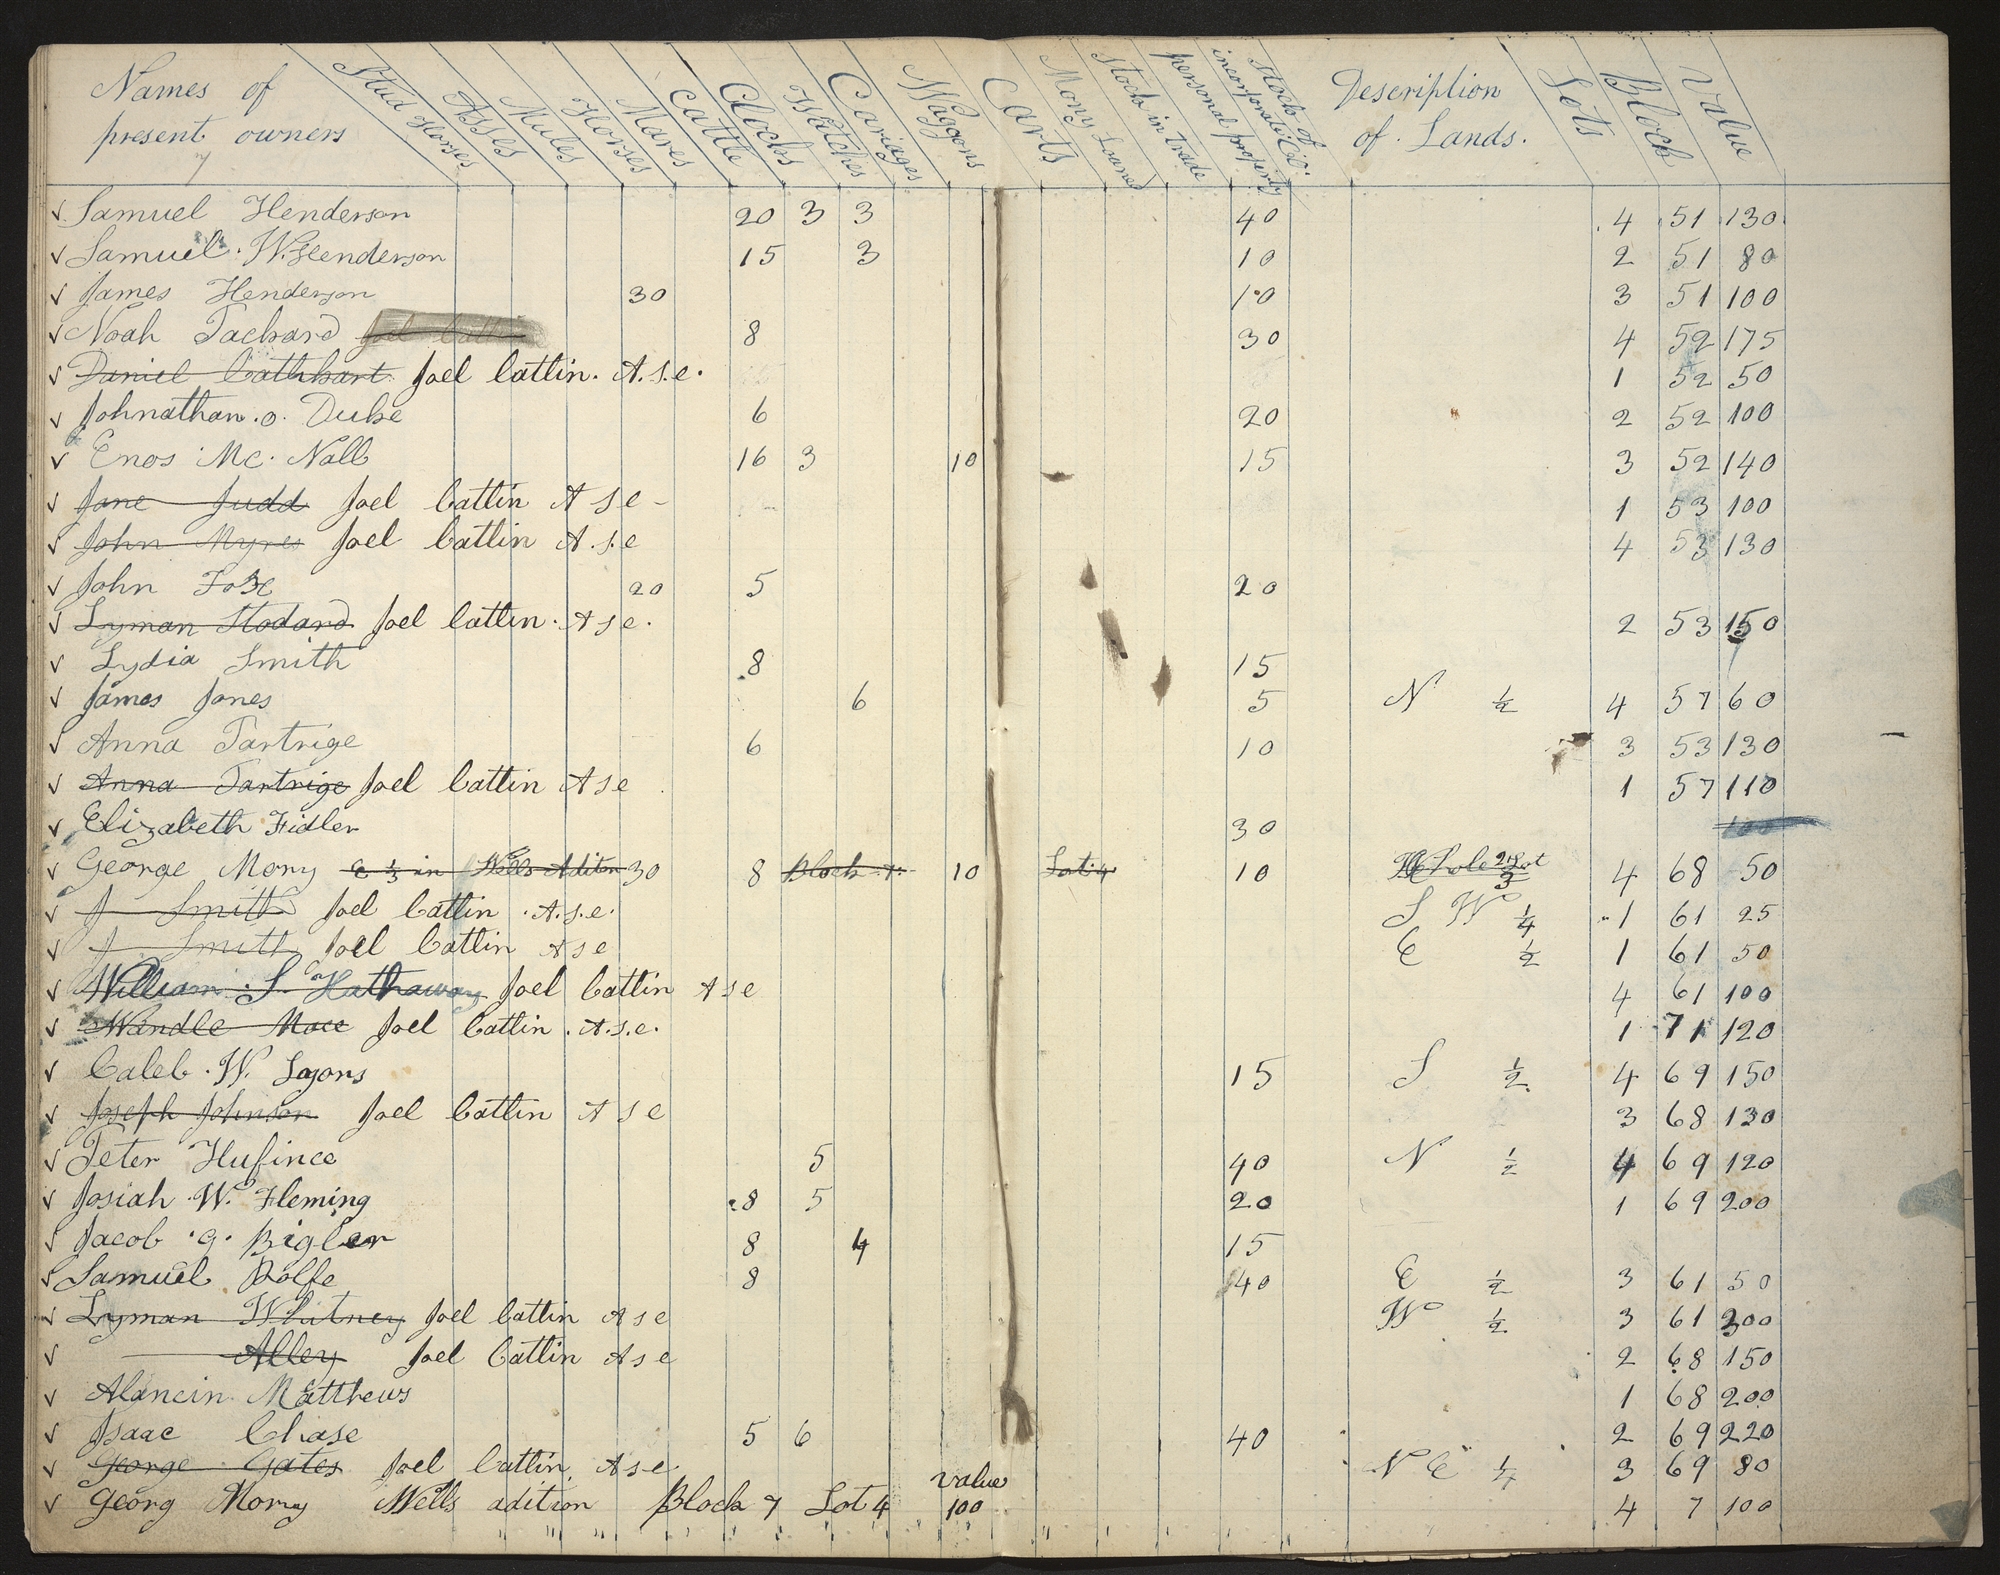 Names of present owners Stud Horses Asses Mules Horses Mares Cattle Clocks Watches Cariages Waggons Carts Mony Loaned Stock in trade personal property Stock of incorporati Co. Description of Lands. Lots Block Value
7
Samuel Henderson 20 3 3 40 4 51 130
Samuel W. Henderson 15 3 10 2 51 80
James Henderson 30 10 3 51 100
Noah Packard 8 30 4 52 175
Daniel Cathkart Joel Catlin. A.s.e. 1 52 50
Johnathan. o. Duke 6 20 2 52 100
Enos Mc. Nall 16 3 10 15 3 52 140
Jane Judd Joel Catlin A s e 1 53 100
John Myres Joel Catlin A.s.e 4 53 130
John Foxe 20 5 20
Lyman Stodard Joel Catlin. A s e. 2 53 150
Lydia Smith 8 15
James Jones 6 5 N 1/2 4 57 60
Anna Partrige 6 10 3 53 130
Anna Partrige Joel Catlin A s e 1 57 110
Elizabeth Fidler 30 100
George Mory E 1/3 in Wells Adition 30 8 Block 7 10 Lot 4 10 Whole Lot 4 68 50
J Smith Joel Catlin A.s.e. S W 1/4 1 61 25
J Smith Joel Catlin A s e E 1/2 1 61 50
William S. Hathaway Joel Catlin A s e 4 61 100
Wandle Mace Joel Catlin. A.s.e. 1 71 120
Caleb. W. Lyons 15 S 1/2 4 69 150
Joseph Johnson Joel Catlin A s e 3 68 130
Peter Hufince 5 40 N 1/2 4 69 120
Josiah W. Fleming 8 5 20 1 69 200
Jacob G. Bigler 8 4 15
Samuel Rolfe 8 40 E 1/2 3 61 50
Lyman Whitney Joel Catlin A s e W 1/2 3 61 200
Alley Joel Catlin A s e 2 68 150
Alancin Matthews 1 68 200
Isaac Chase 5 6 40 2 69 220
George Gates Joel Catlin A s e N E 1/4 3 69 80
value
Georg Mory Wells adition Block 7 Lot 4 100 4 7 100